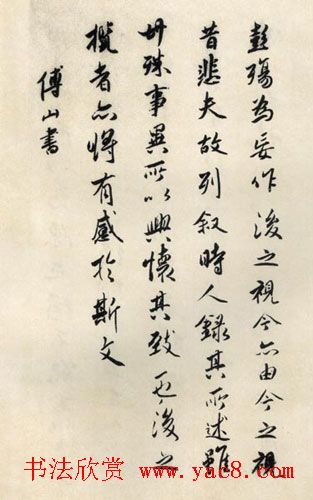 彭殤為妄作後之視今亦由今之視
昔悲夫故列敘時人錄其所述雖
世殊事異所以興懷其致一也後之
攬者亦將有感於斯文
傅山書
书法欣赏
www.yac8.com